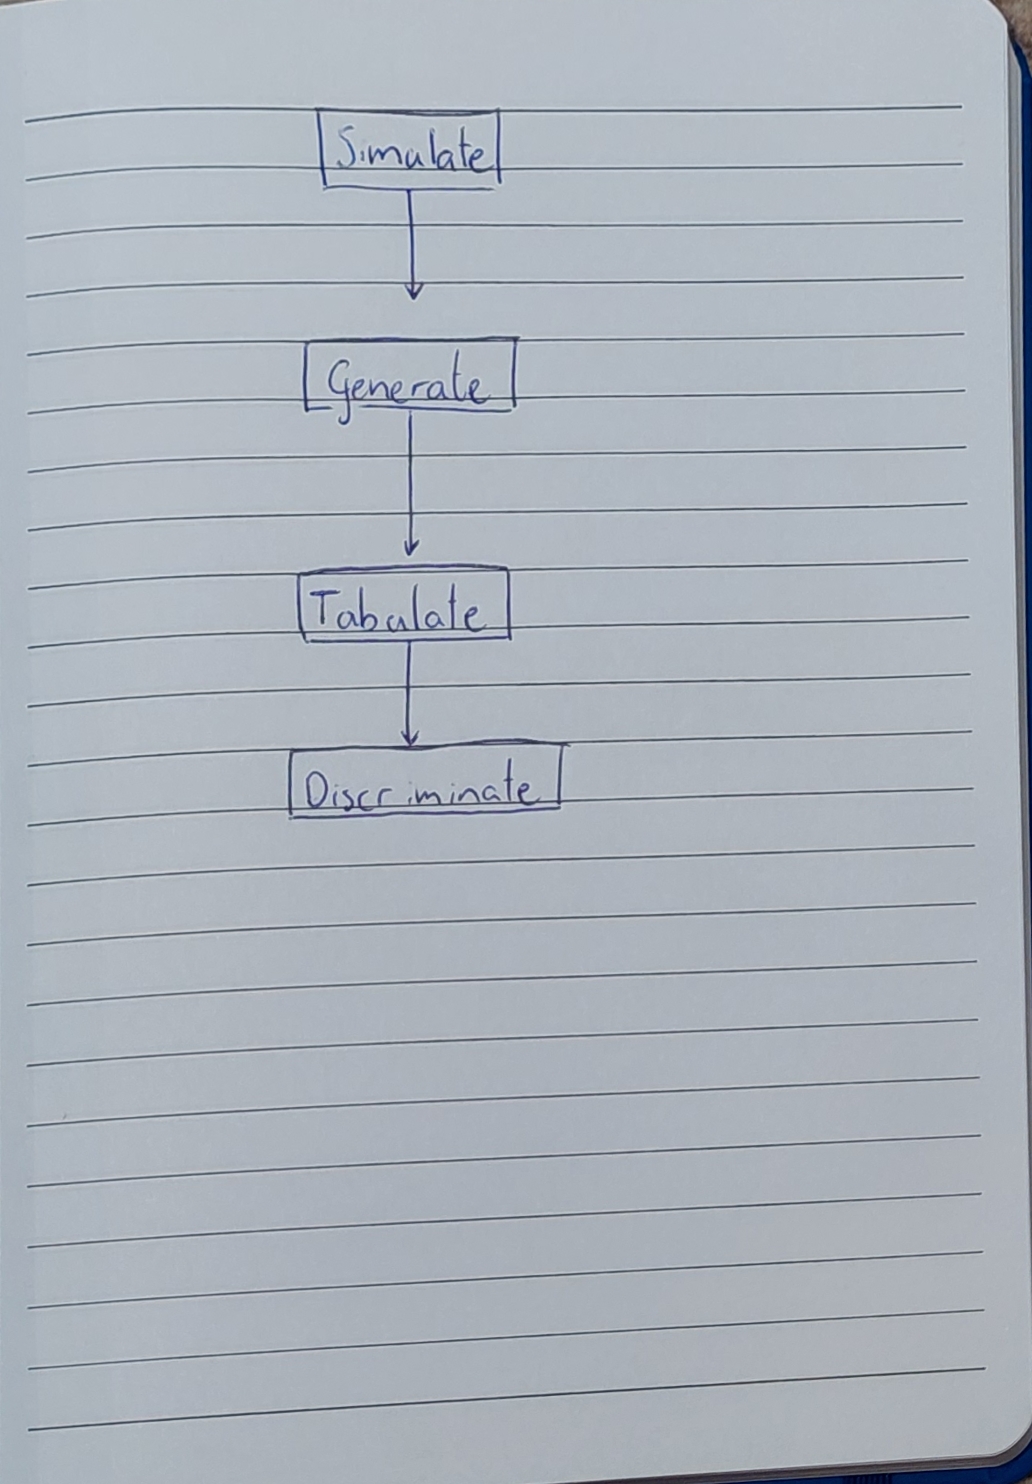 Simulate
Generate
Tabulate
Discriminate